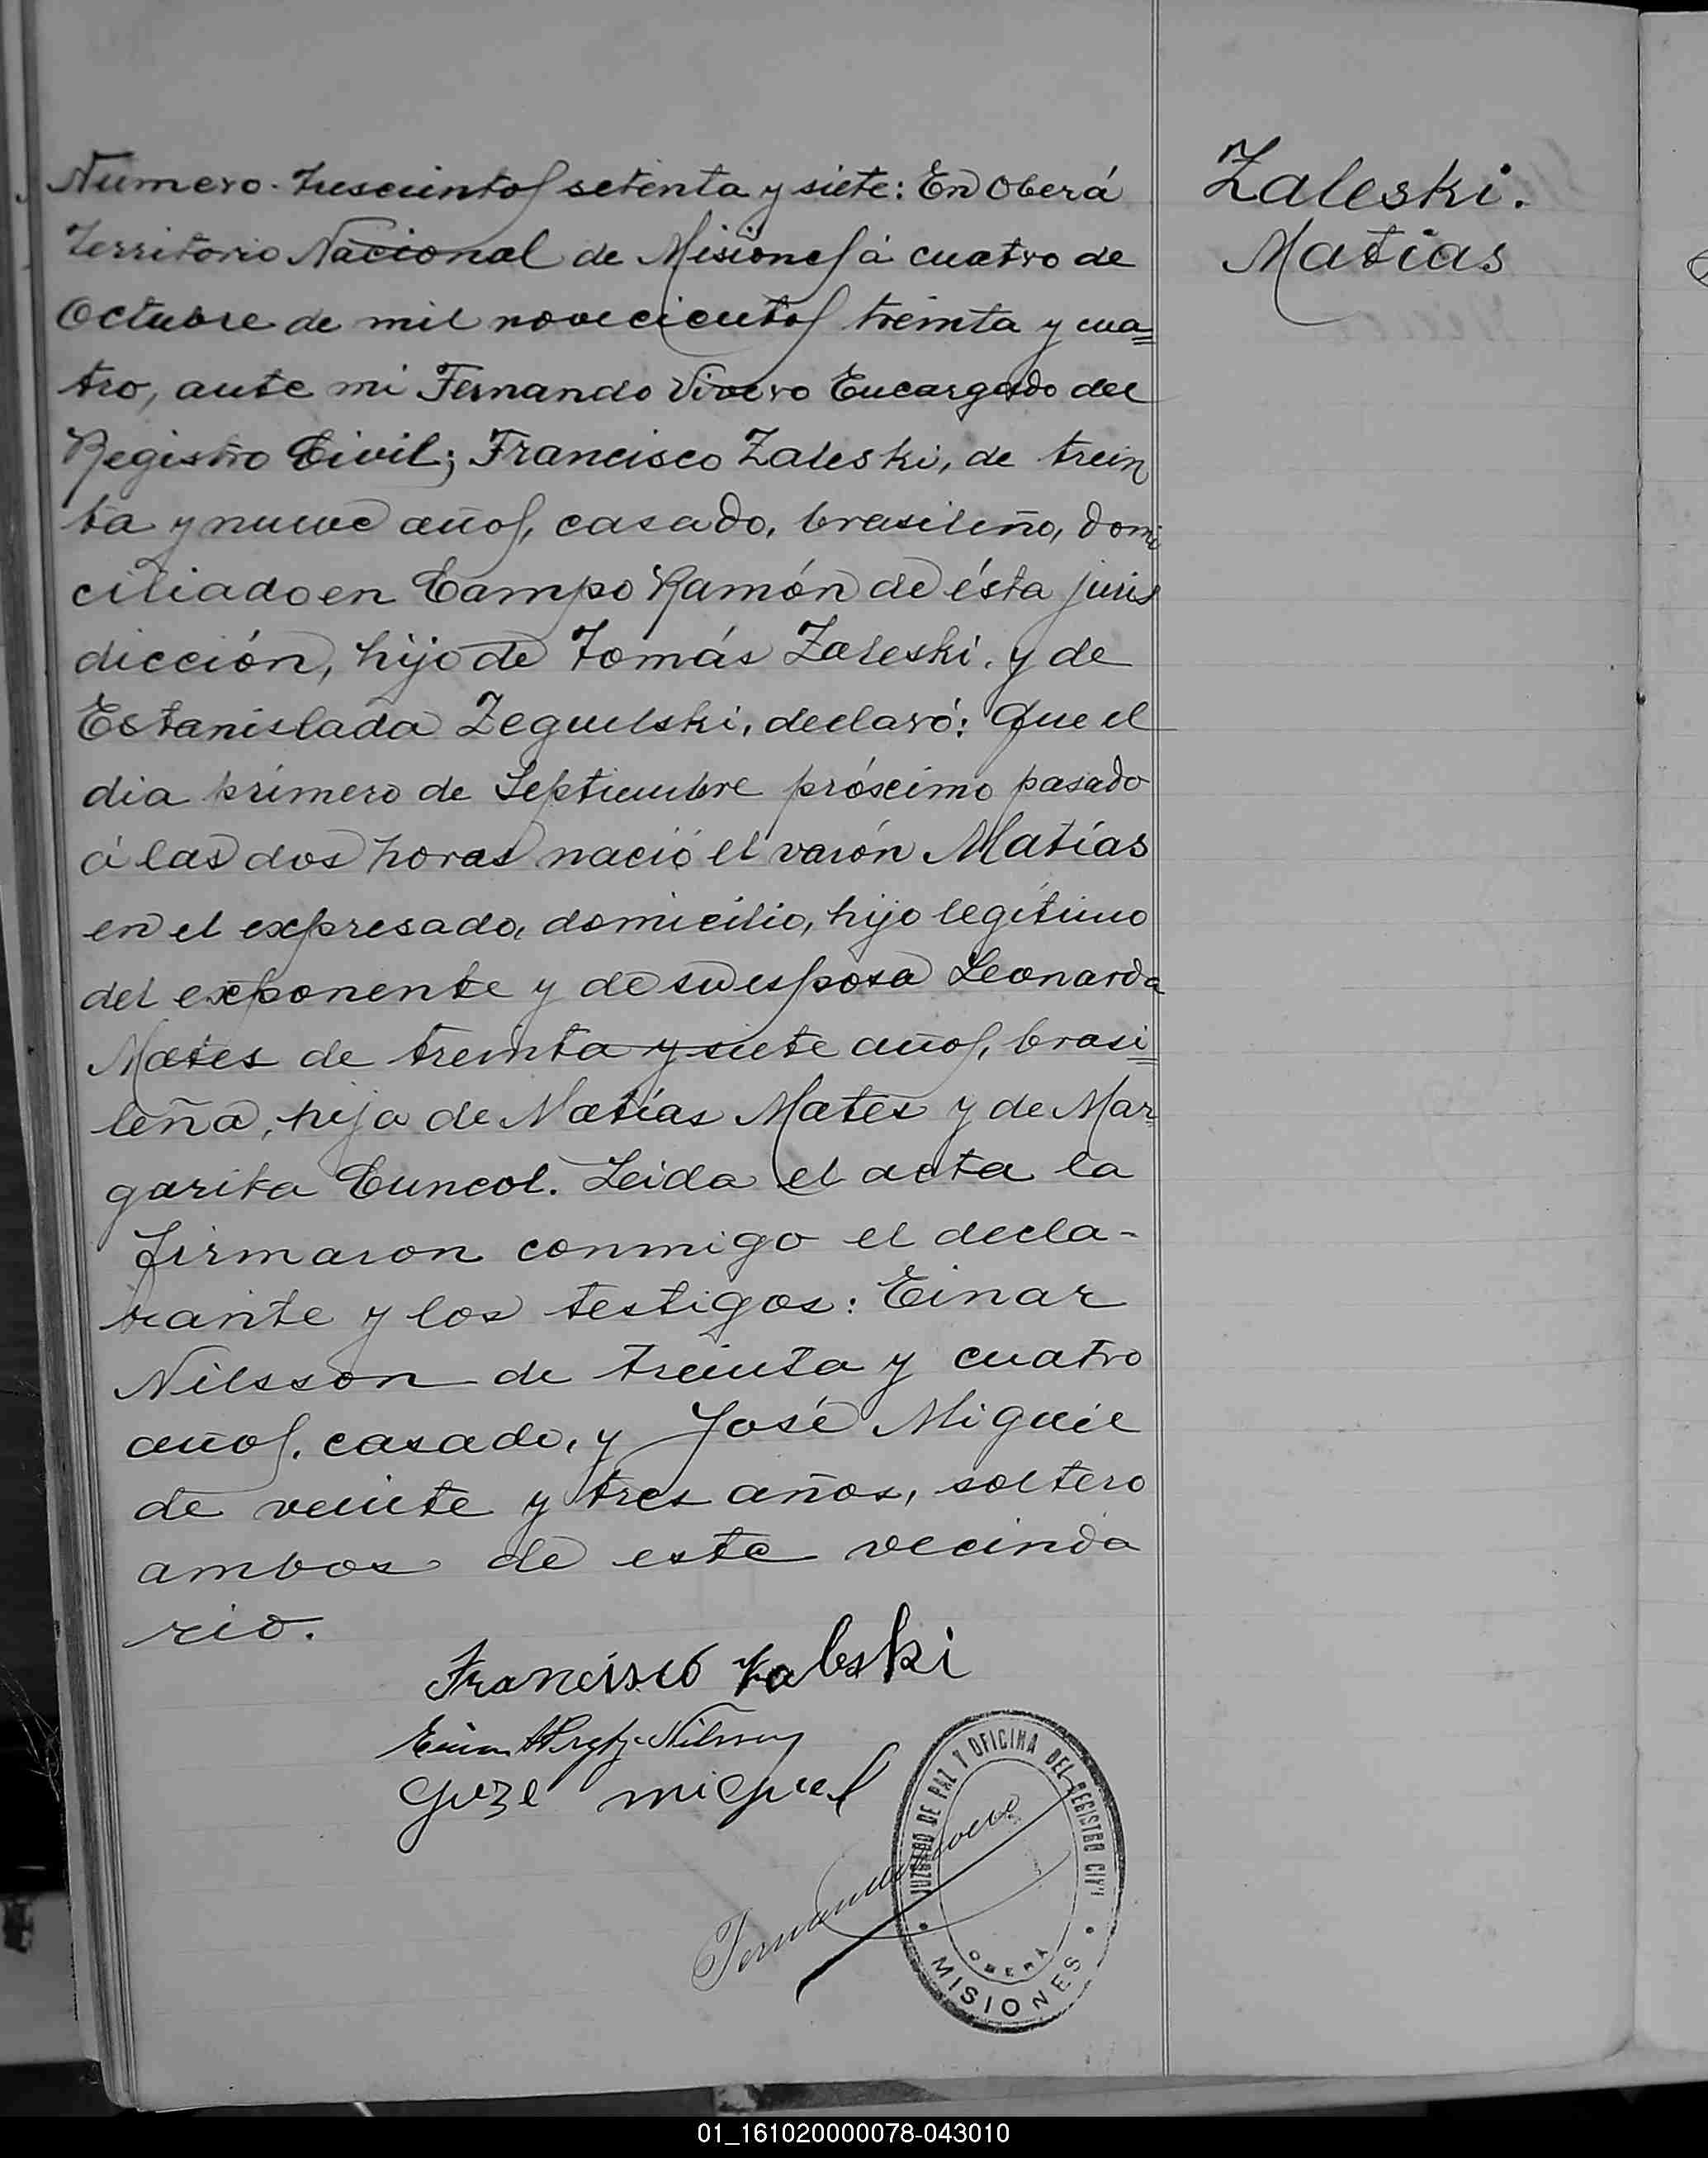 Número. Trescientos setenta y siete: En Oberá
Territorio Nacional de Misiones á cuatro de
Octubre de mil novecientos treinta y cua=
tro, ante mi Fernando Vivero Encargado del
Registro Civil; Francisco Zaleski, de trein
ta y nueve años, casado, brasileño, domi
ciliado en Campo Ramón de ésta juris
dicción, hijo de Tomás Zaleski, y de
Estanislada Zeguelski, declaró: Que el
dia primero de Septiembre próximo pasado
á las dos horas nació el varón Matías
en el expresado domicilio, hijo legítimo
del exponente y de su esposa Leonarda
Mates de treinta y siete años, brasi=
leña, hija de Matías Mates y de Mar=
garita Cuncol. Leida el acta la
firmaron conmigo el decla-
rante y los testigos: Einar
Nilsson de treinta y cuatro
años, casado, y José Miguel
de veinte y tres años, soltero
ambos de este vecinda
rio.
Zaleski.
Matías
Francisco Zaleski
Nilsson
Goze miguel
Fernando Vivero
JUZGADO DE PAZ Y OFICINA DEL REGISTRO CIVIL
OBERÁ
MISIONES
01_161020000078-043010